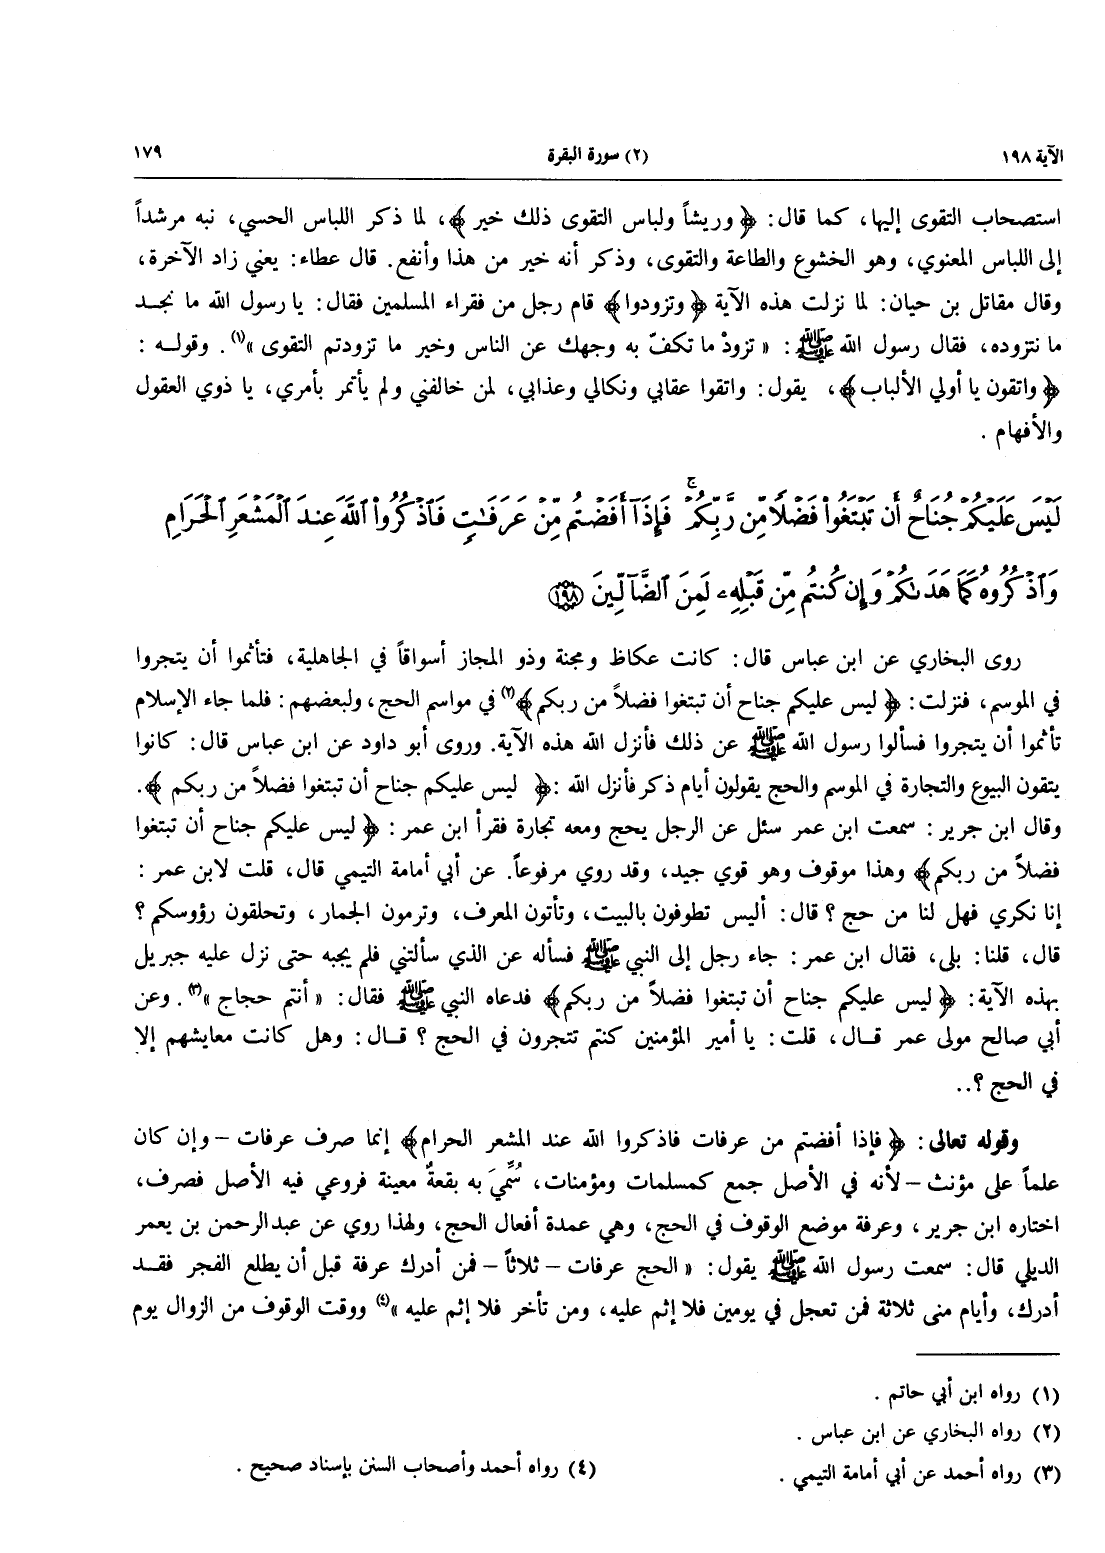 الآية ١٩٨
(٢) سورة البقرة
١٧٩
استصحاب التقوى إليها، كما قال: ﴿وريشاً ولباس التقوى ذلك خير﴾، لما ذكر اللباس الحسي، نبه مرشداً
إلى اللباس المعنوي، وهو الخشوع والطاعة والتقوى، وذكر أنه خير من هذا وأنفع. قال عطاء: يعني زاد الآخرة،
وقال مقاتل بن حيان: لما نزلت هذه الآية ﴿وتزودوا﴾ قام رجل من فقراء المسلمين فقال: يا رسول الله ما نجد
ما نتزوده، فقال رسول الله ﷺ: « تزودْ ما تكفّ به وجهك عن الناس وخير ما تزودتم التقوى »(١). وقوله :
﴿واتقون يا أولي الألباب﴾، يقول: واتقوا عقابي ونكالي وعذابي، لمن خالفني ولم يأتمر بأمري، يا ذوي العقول
والأفهام .
لَيْسَ عَلَيْكُمْ جُنَاحٌ أَن تَبْتَغُواْ فَضْلًا مِّن رَّبِّكُمْ ۚ فَإِذَآ أَفَضْتُم مِّنْ عَرَفَٰتٍ فَٱذْكُرُواْ ٱللَّهَ عِندَ ٱلْمَشْعَرِ ٱلْحَرَامِ
وَٱذْكُرُوهُ كَمَا هَدَىٰكُمْ وَإِن كُنتُم مِّن قَبْلِهِۦ لَمِنَ ٱلضَّآلِّينَ ﴿١٩٨﴾
روى البخاري عن ابن عباس قال: كانت عكاظ ومجنة وذو المجاز أسواقاً في الجاهلية، فتأثموا أن يتجروا
في الموسم، فنزلت: ﴿ليس عليكم جناح أن تبتغوا فضلاً من ربكم﴾(٢) في مواسم الحج، ولبعضهم: فلما جاء الإسلام
تأثموا أن يتجروا فسألوا رسول الله ﷺ عن ذلك فأنزل الله هذه الآية. وروى أبو داود عن ابن عباس قال: كانوا
يتقون البيوع والتجارة في الموسم والحج يقولون أيام ذكر فأنزل الله :﴿ ليس عليكم جناح أن تبتغوا فضلاً من ربكم ﴾.
وقال ابن جرير : سمعت ابن عمر سئل عن الرجل يحج ومعه تجارة فقرأ ابن عمر : ﴿ليس عليكم جناح أن تبتغوا
فضلاً من ربكم﴾ وهذا موقوف وهو قوي جيد، وقد روي مرفوعاً. عن أبي أمامة التيمي قال، قلت لابن عمر :
إنا نكري فهل لنا من حج ؟ قال: أليس تطوفون بالبيت، وتأتون المعرف، وترمون الجمار، وتحلقون رؤوسكم ؟
قال، قلنا: بلى، فقال ابن عمر : جاء رجل إلى النبي ﷺ فسأله عن الذي سألتني فلم يجبه حتى نزل عليه جبريل
بهذه الآية: ﴿ليس عليكم جناح أن تبتغوا فضلاً من ربكم﴾ فدعاه النبي ﷺ فقال: « أنتم حجاج »(٣). وعن
أبي صالح مولى عمر قال، قلت: يا أمير المؤمنين كنتم تتجرون في الحج ؟ قال: وهل كانت معايشهم إلا
في الحج ؟..
وقوله تعالى: ﴿فإذا أفضتم من عرفات فاذكروا الله عند المشعر الحرام﴾ إنما صرف عرفات – وإن كان
علماً على مؤنث – لأنه في الأصل جمع كمسلمات ومؤمنات، سُمِّيَ به بقعةٌ معينة فروعي فيه الأصل فصرف،
اختاره ابن جرير، وعرفة موضع الوقوف في الحج، وهي عمدة أفعال الحج، ولهذا روي عن عبدالرحمن بن يعمر
الديلي قال: سمعت رسول الله ﷺ يقول: « الحج عرفات – ثلاثاً – فمن أدرك عرفة قبل أن يطلع الفجر فقد
أدرك، وأيام منى ثلاثة فمن تعجل في يومين فلا إثم عليه، ومن تأخر فلا إثم عليه »(٤) ووقت الوقوف من الزوال يوم
(١) رواه ابن أبي حاتم .
(٢) رواه البخاري عن ابن عباس .
(٣) رواه أحمد عن أبي أمامة التيمي .
(٤) رواه أحمد وأصحاب السنن بإسناد صحيح .